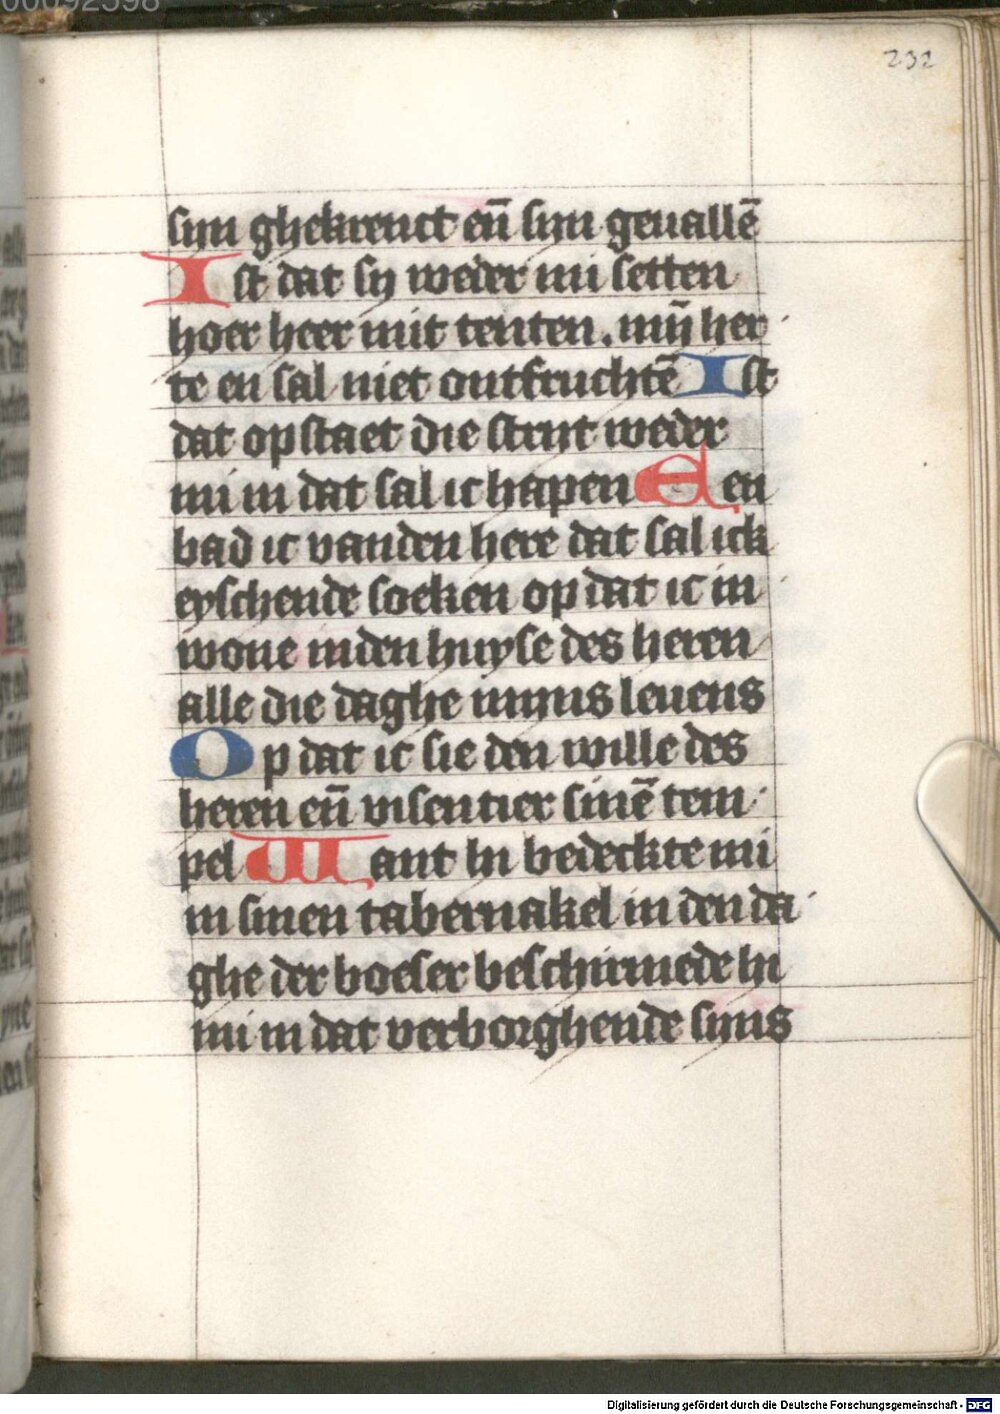 232
sijn ghekrenct en̄ sijn geuallē
Ist dat sij weder mi setten
hoer heer mit tenten. mij̄ her
te en sal niet ontfruchtē Ist
dat op staet die strijt weder
mi in dat sal ic hapen Een
bad ic vanden here dat sal ick
eyschende soeken op dat ic in
wone inden huyse des heren
alle die daghe mijns leuens
Op dat ic sie den wille des
heren en̄ visentier sinē tem
pel Want hi bedeckte mi
in sinen tabernakel in den da
ghe der boeser beschirmede hi
mi in dat verborghende sijns
Digitalisierung gefördert durch die Deutsche Forschungsgemeinschaft - DFG